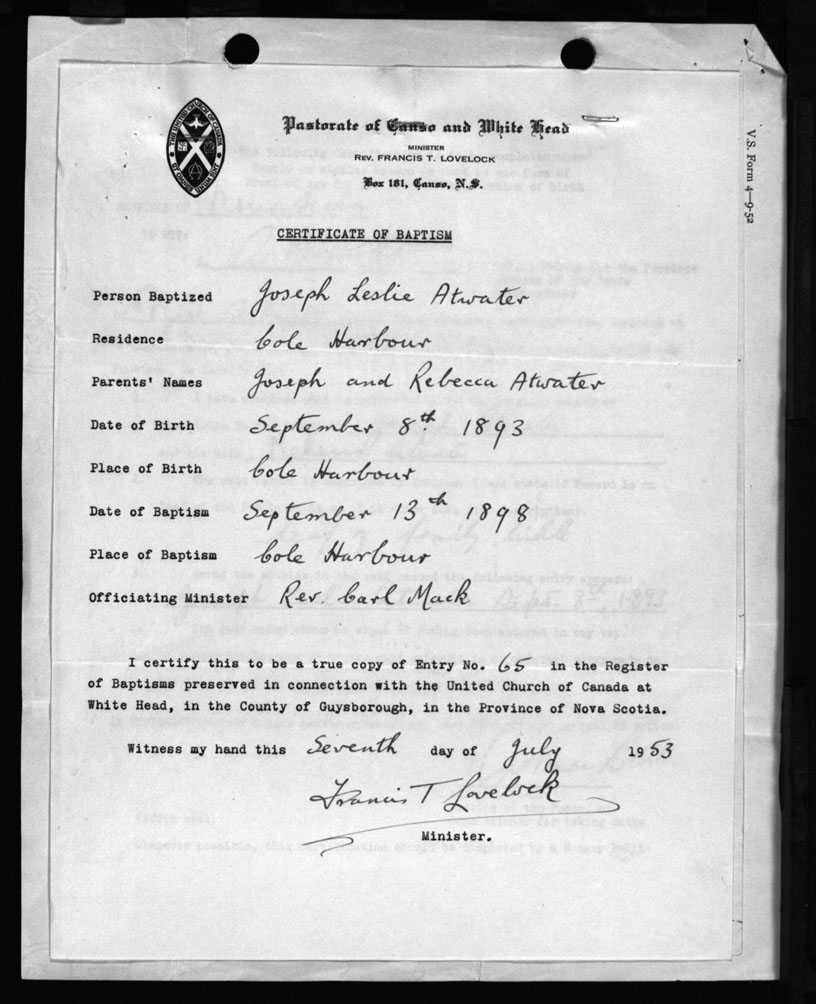 Pastorate of Canso and White Head
MINISTER
REV. FRANCIS T. LOVELOCK
Box 181, Canso, N.S.
V.S. Form 4—9-52
CERTIFICATE OF BAPTISM
Person Baptized Joseph Leslie Atwater
Residence Cole Harbour
Parents' Names Joseph and Rebecca Atwater
Date of Birth September 8th 1893
Place of Birth Cole Harbour
Date of Baptism September 13th 1898
Place of Baptism Cole Harbour
Officiating Minister Rev. Carl Mack
I certify this to be a true copy of Entry No. 65 in the Register
of Baptisms preserved in connection with the United Church of Canada at
White Head, in the County of Guysborough, in the Province of Nova Scotia.
Witness my hand this Seventh day of July 1953
Francis T Lovelock
Minister.